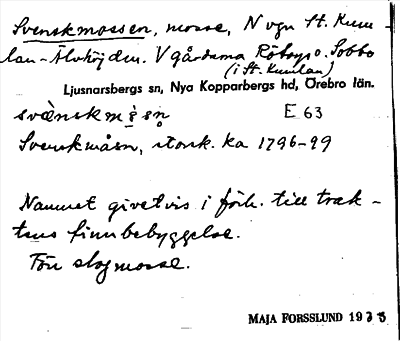 Svenskmossen, mosse, N vgn St. Kum-
lan - Älvhöjden. V gårdarna Röbergs o. Sobbo
(i St. Kumlan)
Ljusnarsbergs sn, Nya Kopparbergs hd, Örebro län.
E 63
Svenskmåsn, storsk. ka 1796-99
Namnet givetvis i förh. till trak-
tens finnbebyggelse.
Förr slogmosse.
MAJA FORSSLUND 1935